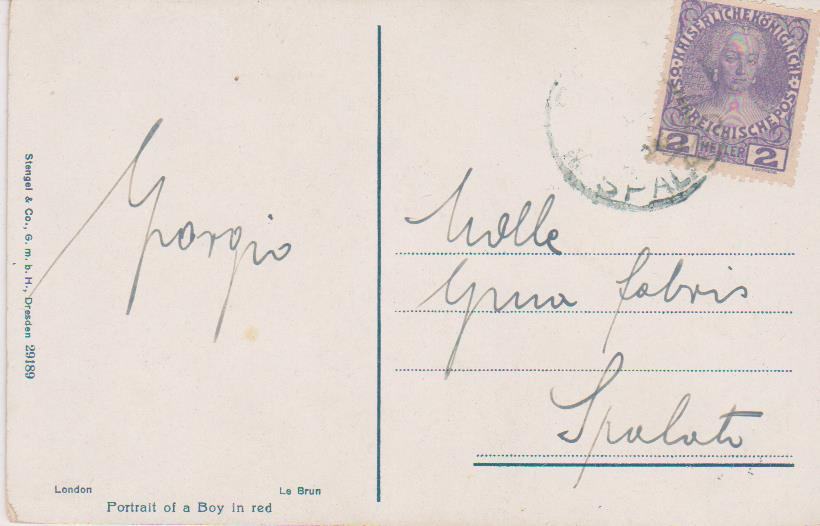 Giorgio
Stengel & Co., G. m. b. H., Dresden 29189
London
Le Brun
Portrait of a Boy in red
KAISERLICHE KÖNIGLICHE ÖSTERREICHISCHE POST
2 HELLER 2
SPALA
Mlle
Gina Fabris
Spalato